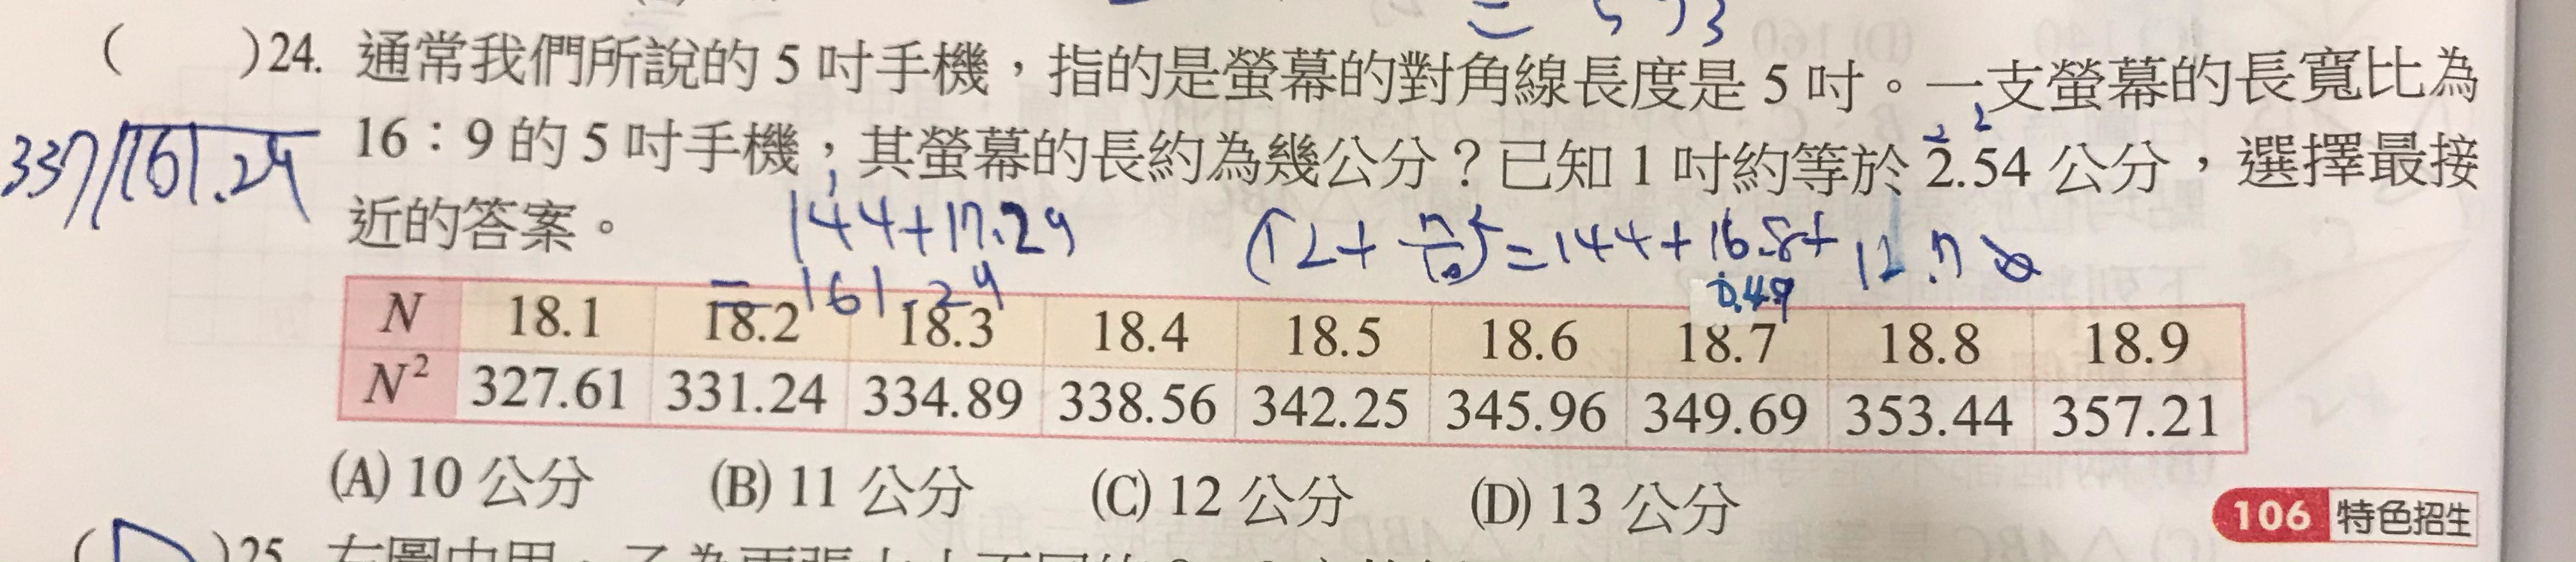 ( )24. 通常我們所說的 5 吋手機，指的是螢幕的對角線長度是 5 吋。一支螢幕的長寬比為
16：9 的 5 吋手機，其螢幕的長約為幾公分？已知 1 吋約等於 2.54 公分，選擇最接
近的答案。
337 161.29
144+17.29
161.29
=144+16.8+
0.49
12.7
N 18.1 18.2 18.3 18.4 18.5 18.6 18.7 18.8 18.9
N² 327.61 331.24 334.89 338.56 342.25 345.96 349.69 353.44 357.21
(A) 10 公分 (B) 11 公分 (C) 12 公分 (D) 13 公分
106 特色招生
)25.